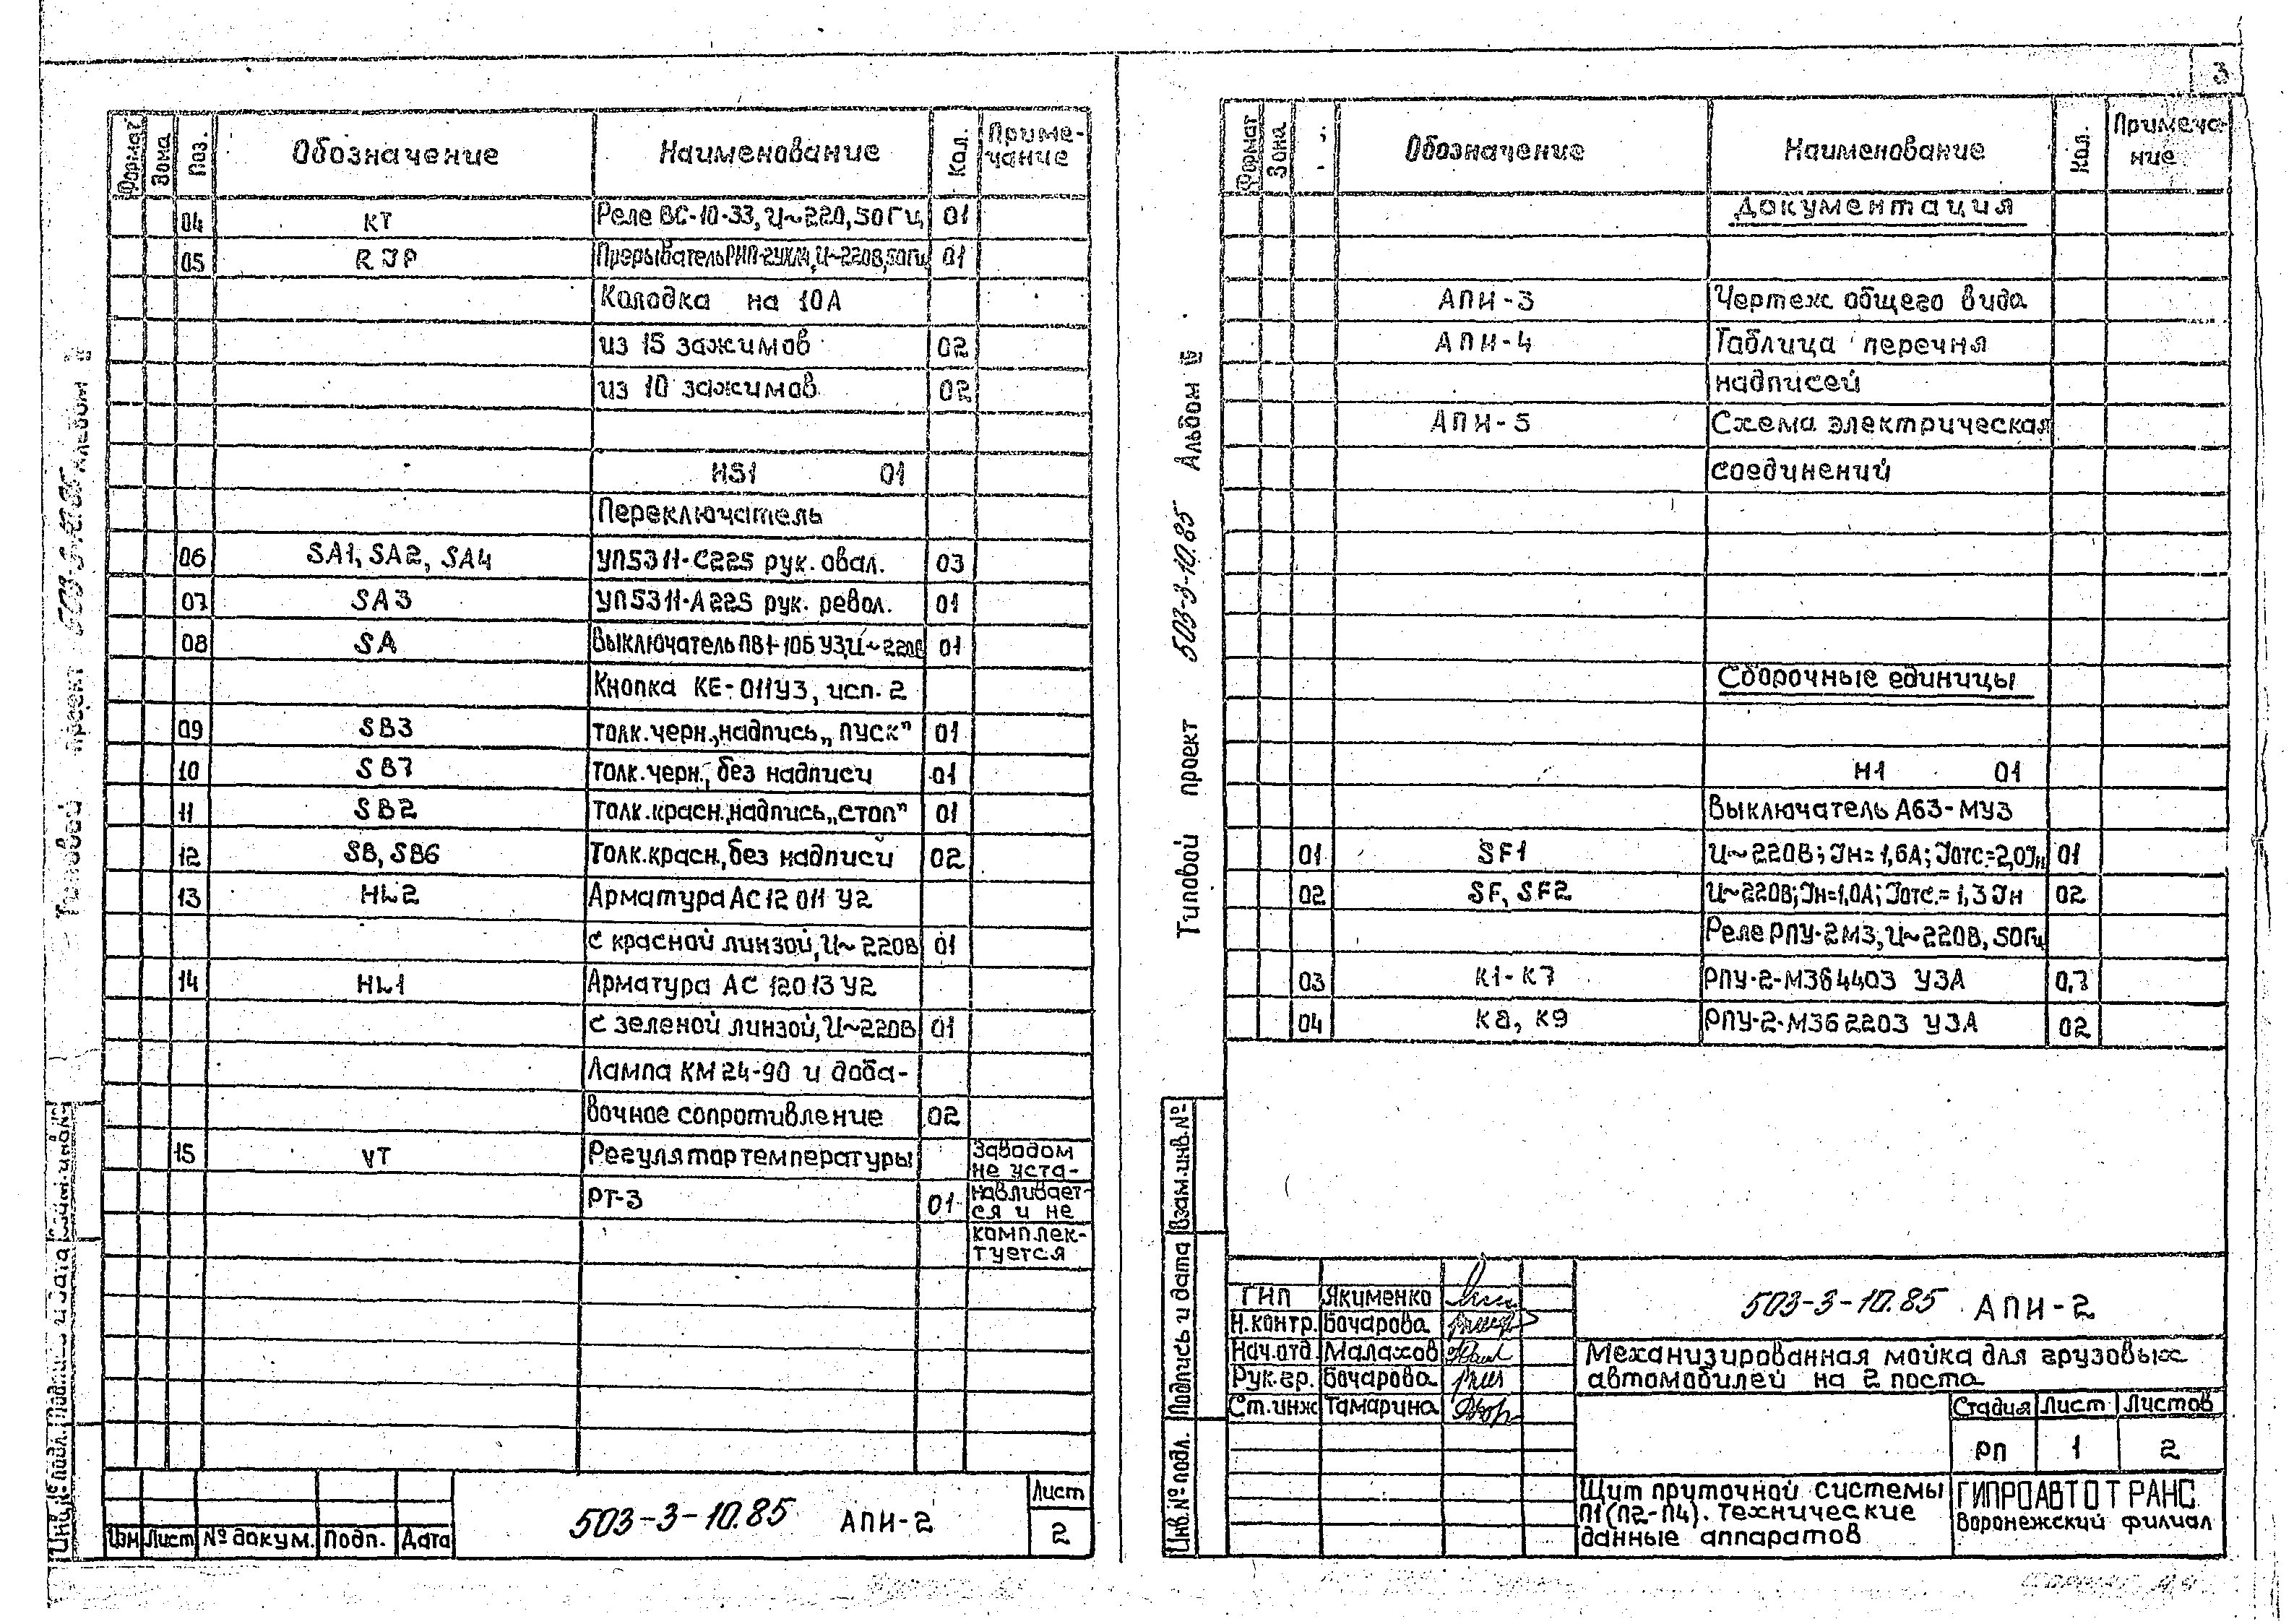 3
Формат Зона Поз. Обозначение Наименование Кол. Приме-
чание
04 КТ Реле ВС-10-33, U~220, 50Гц 01
05 RJP Прерыватель U~220В, 50Гц 01
Колодка на 10А
из 15 зажимов 02
из 10 зажимов 02
HS1 01
Переключатель
06 SA1, SA2, SA4 УП5311-С225 рук. овал. 03
07 SA3 УП5311-А225 рук. револ. 01
08 SA Выключатель ПВ1-10Б У3, U~220В 01
Кнопка КЕ-011У3, исп. 2
09 SB3 толк. черн., надпись „пуск" 01
10 SB7 толк. черн., без надписи 01
11 SB2 толк. красн., надпись „стоп" 01
12 SB, SB6 толк. красн., без надписи 02
13 HL2 Арматура АС12 011 У2
с красной линзой, U~220В 01
14 HL1 Арматура АС 12013 У2
с зеленой линзой, U~220В 01
Лампа КМ 24-90 и доба-
вочное сопротивление 02
15 VT Регулятор температуры
РТ-3 01
Заводом
не уста-
навливает-
ся и не
комплек-
туется
Изм Лист № докум. Подп. Дата
503-3-10.85 АПН-2
Лист
2
Типовой проект Альбом
Инв.№ подл. Подпись и дата
Формат Зона Обозначение Наименование Кол. Примеча-
ние
Документация
АПН-3 Чертеж общего вида
АПН-4 Таблица перечня
надписей
АПН-5 Схема электрическая
соединений
Сборочные единицы
Н1 01
Выключатель А63-МУ3
01 SF1 U~220В; Jн=1,6А; Jотс.=2,0Jн 01
02 SF, SF2 U~220В; Jн=1,0А; Jотс.=1,3Jн 02
Реле РПУ-2М3, U~220В, 50Гц
03 К1-К7 РПУ-2-М364403 У3А 0,7
04 К8, К9 РПУ-2-М362203 У3А 02
Типовой проект 503-3-10.85 Альбом
Инв.№ подл. Подпись и дата Взам.инв.№
ГИП Якименко
Н.контр. Бочарова
Нач.отд. Малахов
Рук.гр. Бочарова
Ст.инж Тамарина
503-3-10.85 АПН-2
Механизированная мойка для грузовых
автомобилей на 2 поста
Стадия Лист Листов
РП 1 2
Щит приточной системы
П1(П2-П4). Технические
данные аппаратов
ГИПРОАВТОТРАНС
Воронежский филиал